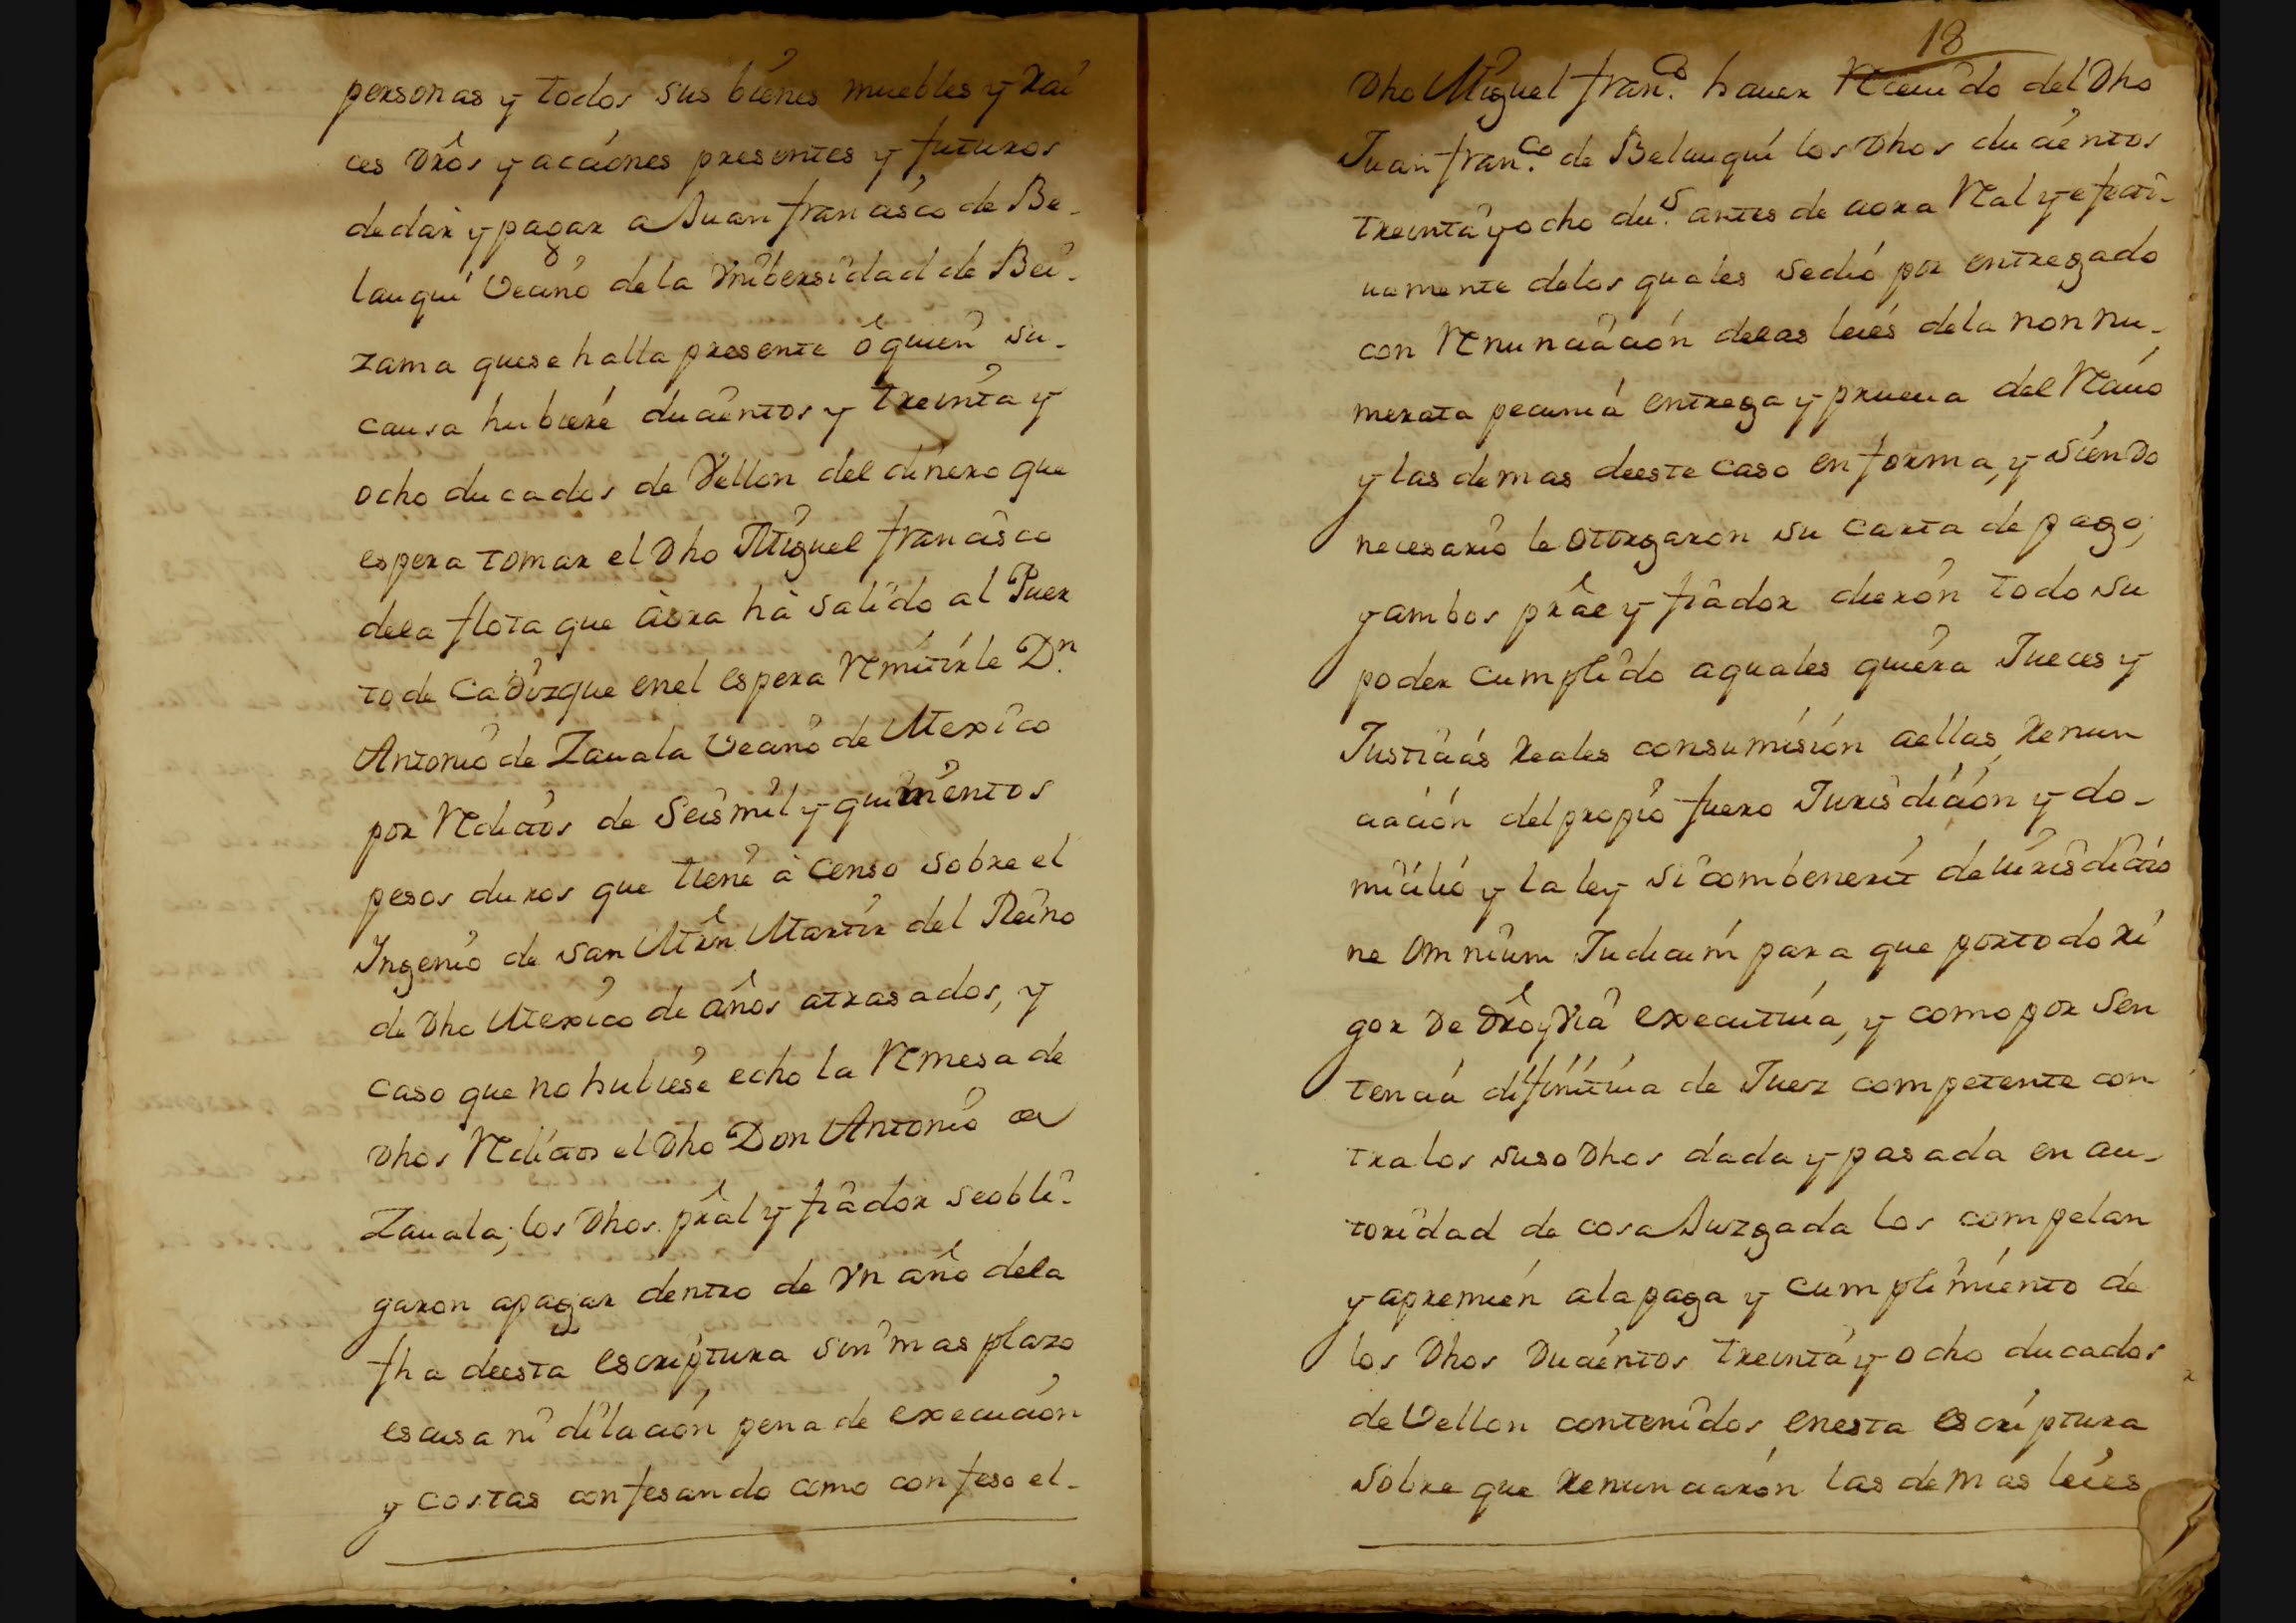 personas y todos sus bienes muebles y Rai
ces drôs y acciones presentes y futuros
de dar y pagar a Juan francisco de Be-
lauqui Vecino de la Vnibersidad de Bei-
zama que se halla presente ô quien su-
causa hubiere ducientos y treinta y
ocho ducados de Vellon del dinero que
espera tomar el Dho Miguel francisco
dela flota que àora hà salido al Puer
to de Cadiz que en el espera Remitirle Dn.
Antonio de Zauala Vecino de Mexico
por Reditos de Seis mil y quinientos
pesos duros que tiene à Censo sobre el
Ingenio de San Mrîn Martir del Reino
de Dho Mexico de años atrasados, y
caso que no hubiese echo la Remesa de
Dhos Reditos el Dho Don Antonio de
Zauala; los Dhos. prâl y fiador se obli-
garon apagar dentro de Vn año dela
fha deesta escriptura sin mas plazo
escusa ni dilacion pena de execucion
y costas confesando como confeso el-
18
Dho Miguel franco. hauer Receuido del Dho
Juan franco. de Belauqui los Dhos ducientos
treinta y ocho dus. antes de aora Real y efecti-
uamente delos quales se dio por entregado
con Renunciacion delas leies dela non nu-
merata pecunia entrega y prueua del Reciuo
y las demas deeste caso en forma, y siendo
necesario le otorgaron su carta de pago;
y ambos prâl y fiador dieron todo su
poder cumplido a quales quiera Jueces y
Justicias Reales con sumision aellas, Renun
ciacion del propio fuero Jurisdicion y do-
micilio y la ley si combenerit de iurisdictio
ne omnium Judicum para que por todo Ri
gor de drô y via executiua, y como por sen
tencia difinitiua de Juez competente con
tra los susodhos dada y pasada en au-
toridad de cosa Juzgada los compelan
y apremien ala paga y cumplimiento de
los Dhos Ducientos treinta y ocho ducados
de Vellon contenidos enesta escriptura
sobre que Renunciaron las demas leies